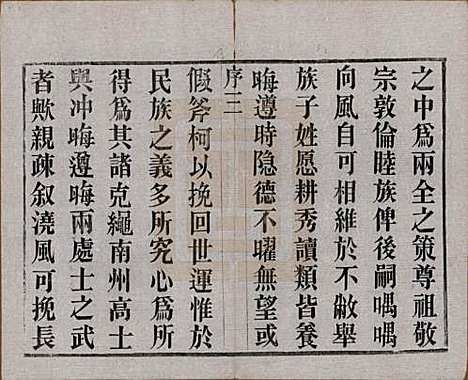 之中爲兩全之策尊祖敬
宗敦倫睦族俾後嗣喁喁
向風自可相維於不敝舉
族子姓愿耕秀讀類皆養
晦遵時隐德不曜無望或
序 二
假斧柯以挽回世運惟於
民族之義多所究心爲所
得爲其諸克繩南州高士
與冲晦遵晦兩處士之武
者歟親疎叙澆風可挽長